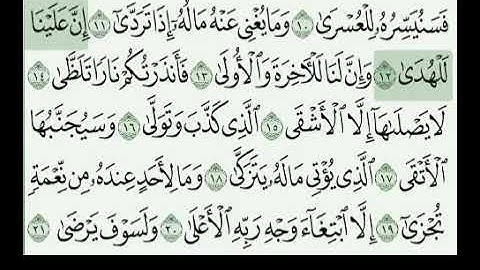 فَسَنُيَسِّرُهُۥ لِلْعُسْرَىٰ ١٠ وَمَا يُغْنِى عَنْهُ مَالُهُۥٓ إِذَا تَرَدَّىٰٓ ١١ إِنَّ عَلَيْنَا
لَلْهُدَىٰ ١٢ وَإِنَّ لَنَا لَلْءَاخِرَةَ وَٱلْأُولَىٰ ١٣ فَأَنذَرْتُكُمْ نَارًا تَلَظَّىٰ ١٤
لَا يَصْلَىٰهَآ إِلَّا ٱلْأَشْقَى ١٥ ٱلَّذِى كَذَّبَ وَتَوَلَّىٰ ١٦ وَسَيُجَنَّبُهَا
ٱلْأَتْقَى ١٧ ٱلَّذِى يُؤْتِى مَالَهُۥ يَتَزَكَّىٰ ١٨ وَمَا لِأَحَدٍ عِندَهُۥ مِن نِّعْمَةٍ
تُجْزَىٰٓ ١٩ إِلَّا ٱبْتِغَآءَ وَجْهِ رَبِّهِ ٱلْأَعْلَىٰ ٢٠ وَلَسَوْفَ يَرْضَىٰ ٢١